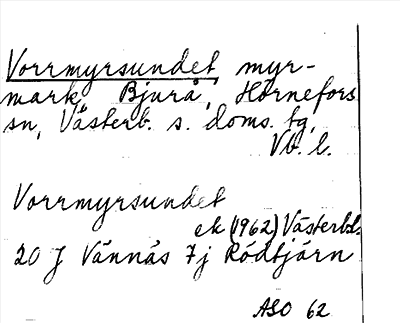 Vorrmyrsundet, myr-
mark, Bjurå, Hörnefors
sn, Västerb. s. doms. tg,
Vb. l.
Vorrmyrsundet
ek (1962) Västerbl.
20 J Vännäs 7j Rödtjärn
ASO 62